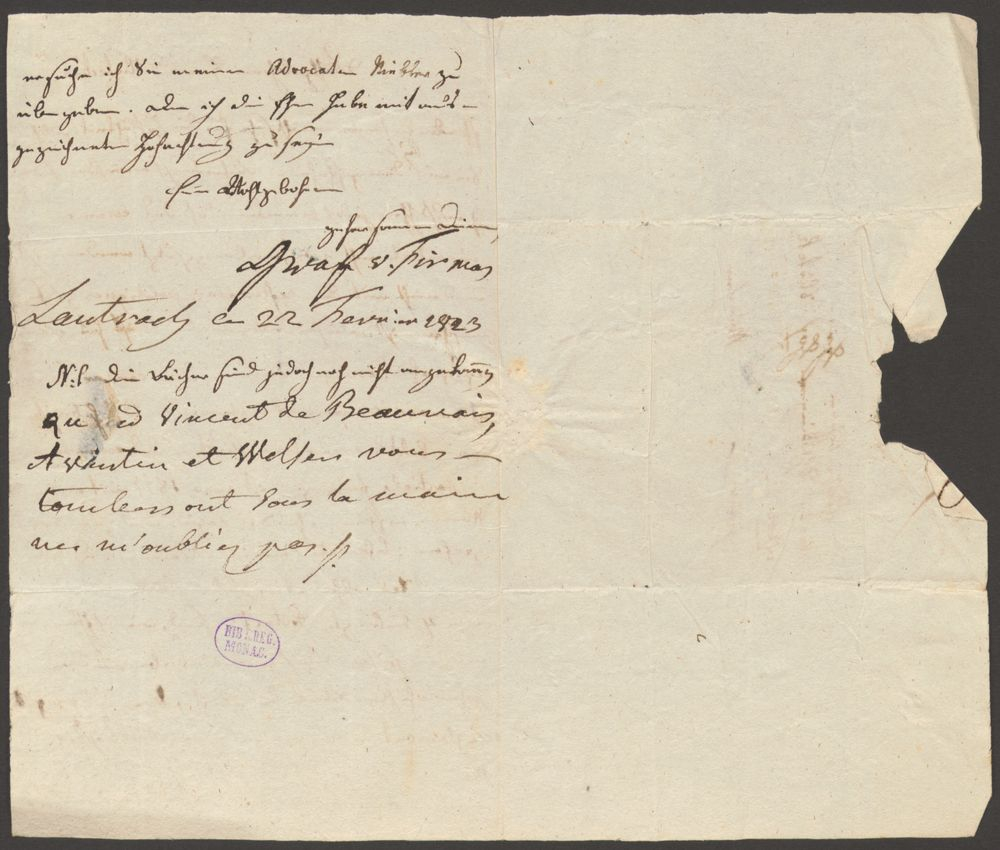 ersuche ich Sie meinem Advocaten zu
übergeben. der ich die Ehre habe mit aus-
gezeichneten Hochachtung zu seyn
Euer Wohlgebohren
gehorsamer Diener
Graf v. Firmas
Lautrach ce 22 Fevrier 1823
N.b. die Bücher sind jedoch noch nicht angekommen
quand Vincent de Beauvais,
Aventin et Welsers vous
tomberont sous la main
ne m'oubliez pas.
BIBL. REG.
MONAC.